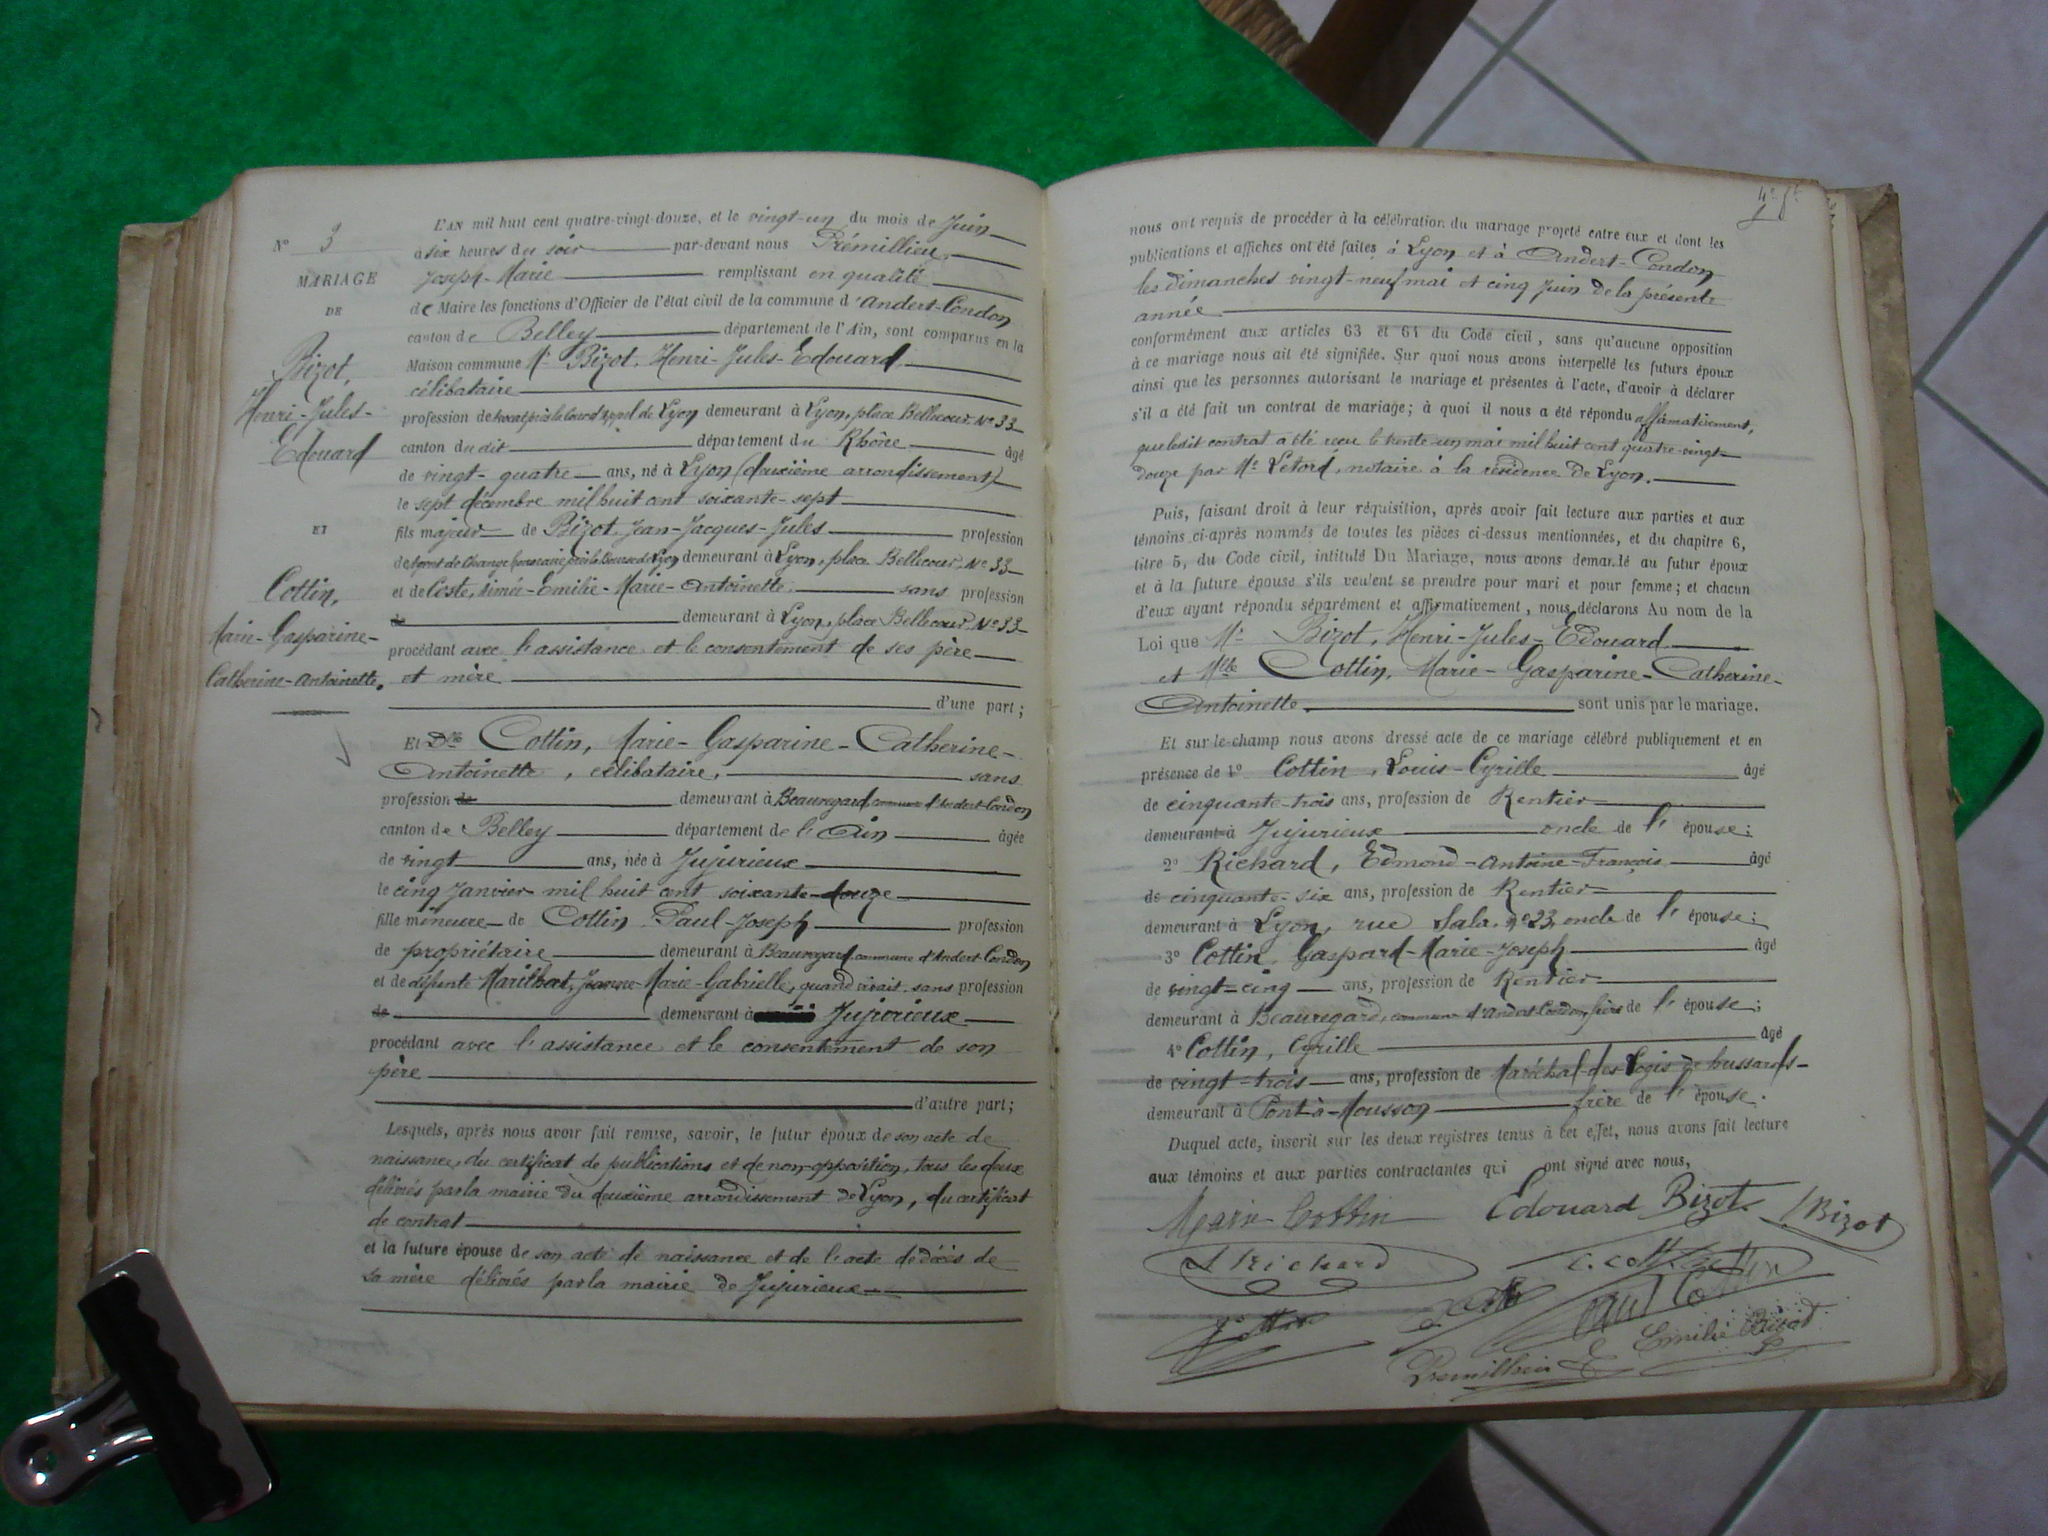 N° 3
MARIAGE
DE
Bizot,
Henri-Jules-
Edouard
ET
Cottin,
Marie-Gasparine-
Catherine-Antoinette.
L'AN mil huit cent quatre-vingt-douze, et le vingt-un du mois de Juin
à six heures du soir par-devant nous Prémillieu,
Joseph-Marie remplissant en qualité
de Maire les fonctions d'Officier de l'état civil de la commune d'Andert-Condon
canton de Belley département de l'Ain, sont comparus en la
Maison commune Mr Bizot, Henri-Jules-Edouard,
célibataire
profession de avocat près la Cour d'appel de Lyon demeurant à Lyon, place Bellecour, N° 33
canton du dit département du Rhône âgé
de vingt-quatre ans, né à Lyon (deuxième arrondissement)
le sept décembre mil huit cent soixante-sept
fils majeur de Bizot, Jean-Jacques-Jules profession
de agent de change près la Bourse de Lyon demeurant à Lyon, place Bellecour, N° 33
et de Coste, Aimée-Emilie-Marie-Antoinette, sans profession
de demeurant à Lyon, place Bellecour, N° 33
procédant avec l'assistance et le consentement de ses père
et mère
d'une part;
Et Dlle Cottin, Marie-Gasparine-Catherine-
Antoinette, célibataire, sans
profession de demeurant à Beauregard, commune d'Andert-Condon
canton de Belley département de l'Ain âgée
de vingt ans, née à Jujurieux
le cinq Janvier mil huit cent soixante-douze
fille mineure de Cottin, Paul-Joseph profession
de propriétaire demeurant à Beauregard commune d'Andert-Condon
et de défunte Jeanne-Marie-Gabrielle, quand vivait sans profession
de demeurant à Jujurieux
procédant avec l'assistance et le consentement de son
père
d'autre part;
Lesquels, après nous avoir fait remise, savoir, le futur époux de son acte de
naissance, du certificat de publications et de non-opposition, tous les deux
délivrés par la mairie du deuxième arrondissement de Lyon, du certificat
de contrat
et la future épouse de son acte de naissance et de l'acte de décès de
sa mère délivrés par la mairie de Jujurieux
nous ont requis de procéder à la célébration du mariage projeté entre eux et dont les
publications et affiches ont été faites à Lyon et à Andert-Condon
les dimanches vingt-neuf mai et cinq Juin de la présente
année
conformément aux articles 63 et 64 du Code civil, sans qu'aucune opposition
à ce mariage nous ait été signifiée. Sur quoi nous avons interpellé les futurs époux
ainsi que les personnes autorisant le mariage et présentes à l'acte, d'avoir à déclarer
s'il a été fait un contrat de mariage; à quoi il nous a été répondu affirmativement,
que ledit contrat a été reçu le trente-un mai mil huit cent quatre-vingt-
douze par Me Letord, notaire à la résidence de Lyon.
Puis, faisant droit à leur réquisition, après avoir fait lecture aux parties et aux
témoins ci-après nommés de toutes les pièces ci-dessus mentionnées, et du chapitre 6,
titre 5, du Code civil, intitulé Du Mariage, nous avons demandé au futur époux
et à la future épouse s'ils veulent se prendre pour mari et pour femme; et chacun
d'eux ayant répondu séparément et affirmativement, nous déclarons Au nom de la
Loi que Mr Bizot, Henri-Jules-Edouard
et Mlle Cottin, Marie-Gasparine-Catherine-
Antoinette sont unis par le mariage.
Et sur-le-champ nous avons dressé acte de ce mariage célébré publiquement et en
présence de 1° Cottin, Louis-Cyrille âgé
de cinquante-trois ans, profession de Rentier
demeurant à Jujurieux oncle de l'épouse;
2° Richard, Edmond-Antoine-François âgé
de cinquante-six ans, profession de Rentier
demeurant à Lyon, rue Sala, N° 23, oncle de l'épouse;
3° Cottin, Gaspard-Marie-Joseph âgé
de vingt-cinq ans, profession de Rentier
demeurant à Beauregard, commune d'Andert-Condon, frère de l'épouse;
4° Cottin, Cyrille âgé
de vingt-trois ans, profession de Maréchal-des-logis de hussards
demeurant à Pont-à-Mousson frère de l'épouse.
Duquel acte, inscrit sur les deux registres tenus à cet effet, nous avons fait lecture
aux témoins et aux parties contractantes qui ont signé avec nous,
Marie Cottin Edouard Bizot J Bizot
Richard C. Cottin
Paul Cottin
Emilie Bizot